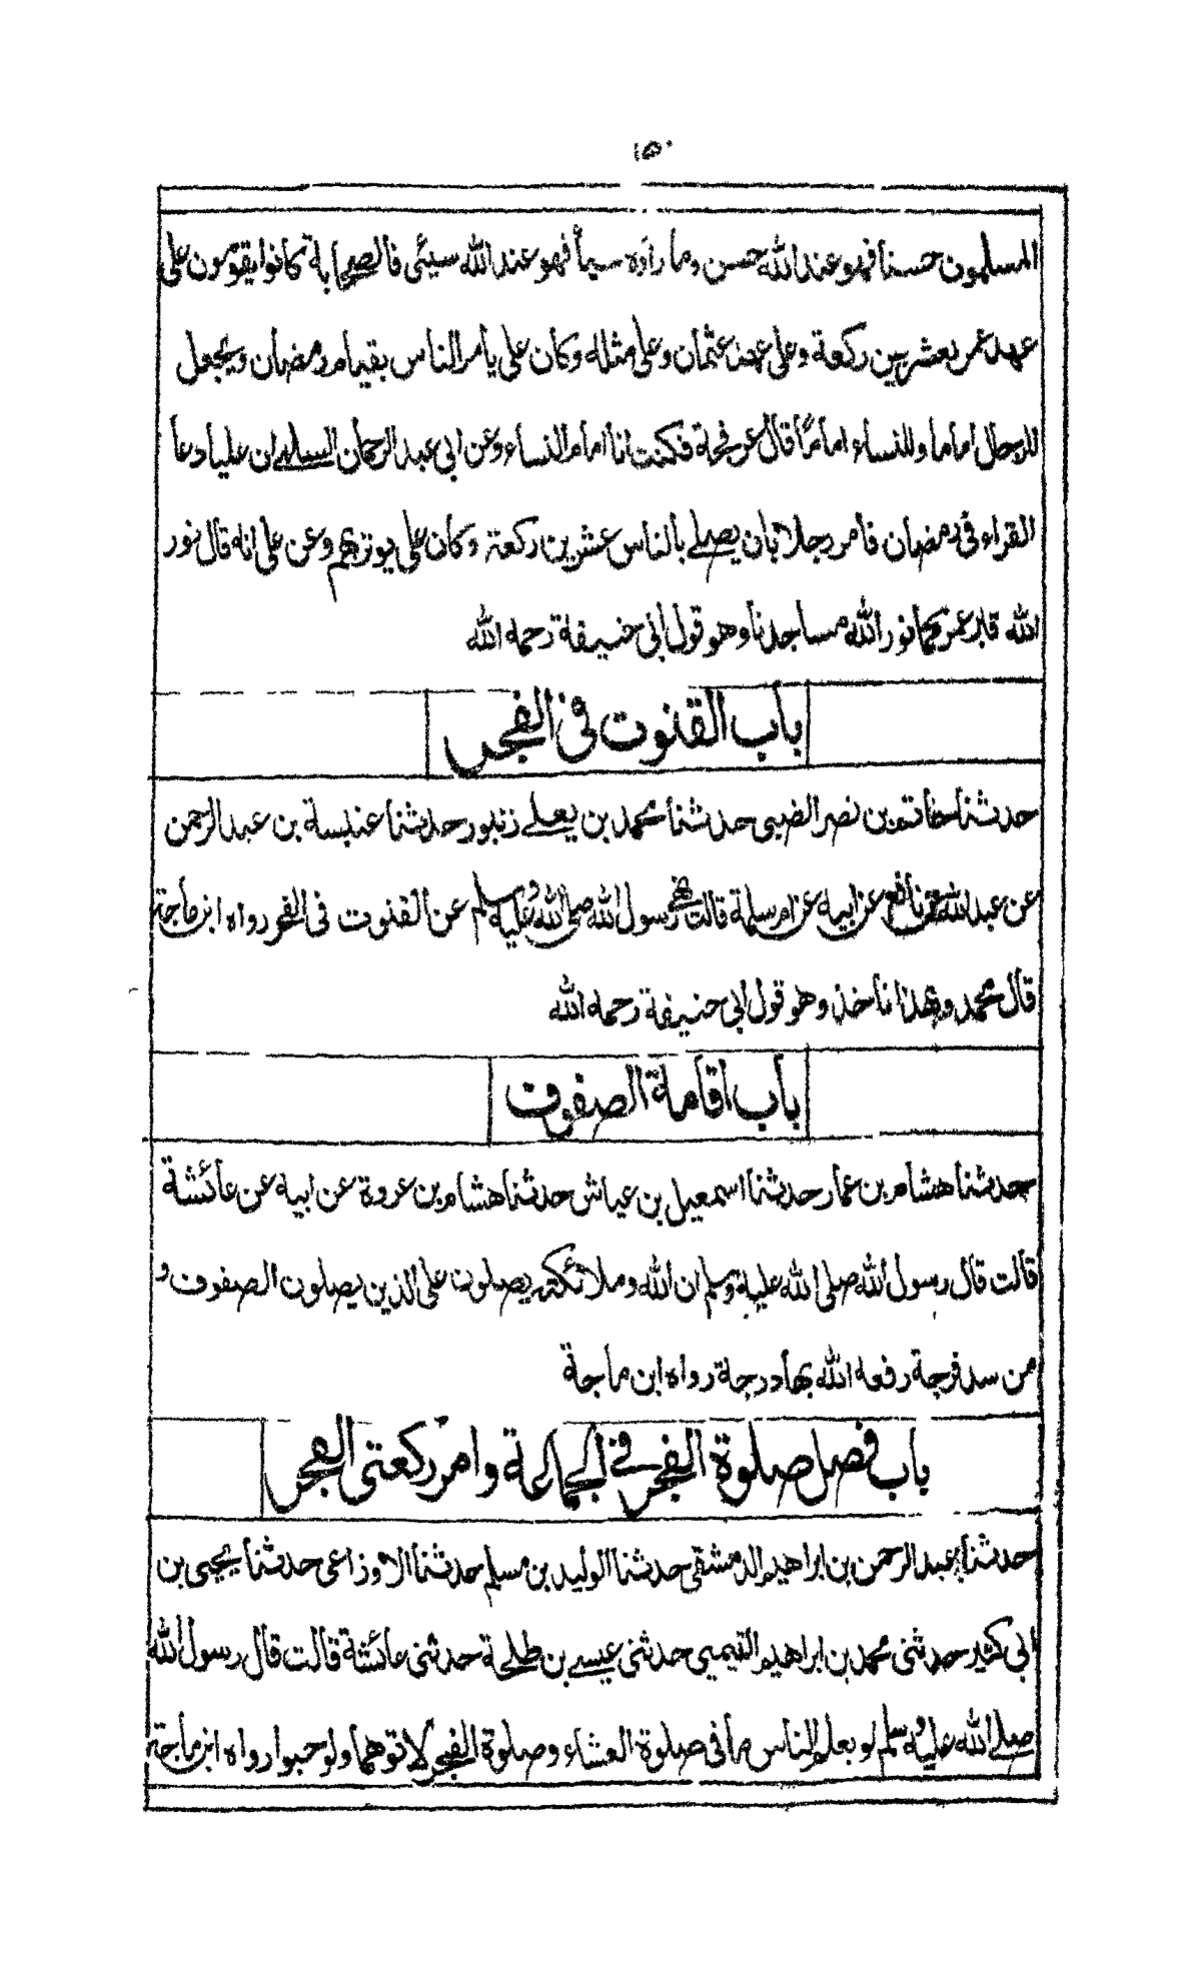 ١٥٠
المسلمون حسنا فهو عند الله حسن وما رآوه سيأ فهو عند الله سيئى فالصحابة كانوا يقومون على
عهد عمر بعشرين ركعة وعلى عهد عثمان وعلى مثاله وكان على يأمر الناس بقيام رمضان ويجعل
للرجال اماما وللنساء اماماً قال عرفجة فكنت انا امام النساء وعن ابى عبد الرحمان السلمى ان عليا دعا
القراء فى رمضان فأمر رجلا بان يصلے بالناس عشرين ركعة وكان على يوتر بهم وعن على انه قال نور
الله قبر عمر كما نور الله مساجدنا وهو قول ابى حنيفة رحمه الله
باب القنوت فى الفجر
حدثنا حاتم بن نصر الضبى حدثنا محمد بن يعلے زنبور حدثنا عنبسة بن عبد الرحمن
عن عبد الله بن نافع عن ابيه عن ام سلمة قالت نهى رسول الله صلى الله عليه وسلم عن القنوت فى الفجر رواه ابن ماجة
قال محمد وبهذا ناخذ وهو قول ابى حنيفة رحمه الله
باب اقامة الصفوف
حدثنا هشام بن عمار حدثنا اسمعيل بن عياش حدثنا هشام بن عروة عن ابيه عن عائشة
قالت قال رسول الله صلى الله عليه وسلم ان الله وملائكته يصلون على الذين يصلون الصفوف و
من سد فرجة رفعه الله بها درجة رواه ابن ماجة
باب فضل صلوة الفجر فى الجماعة وامر ركعتى الفجر
حدثنا عبد الرحمن بن ابراهيم الدمشقى حدثنا الوليد بن مسلم حدثنا الاوزاعى حدثنا يحيى بن
ابى كثير حدثنى محمد بن ابراهيم التيمى حدثنى عيسے بن طلحة حدثنى عائشة قالت قال رسول الله
صلے الله عليه وسلم لو يعلم الناس ما فى صلوة العشاء وصلوة الفجر لاتوهما ولو حبوا رواه ابن ماجة